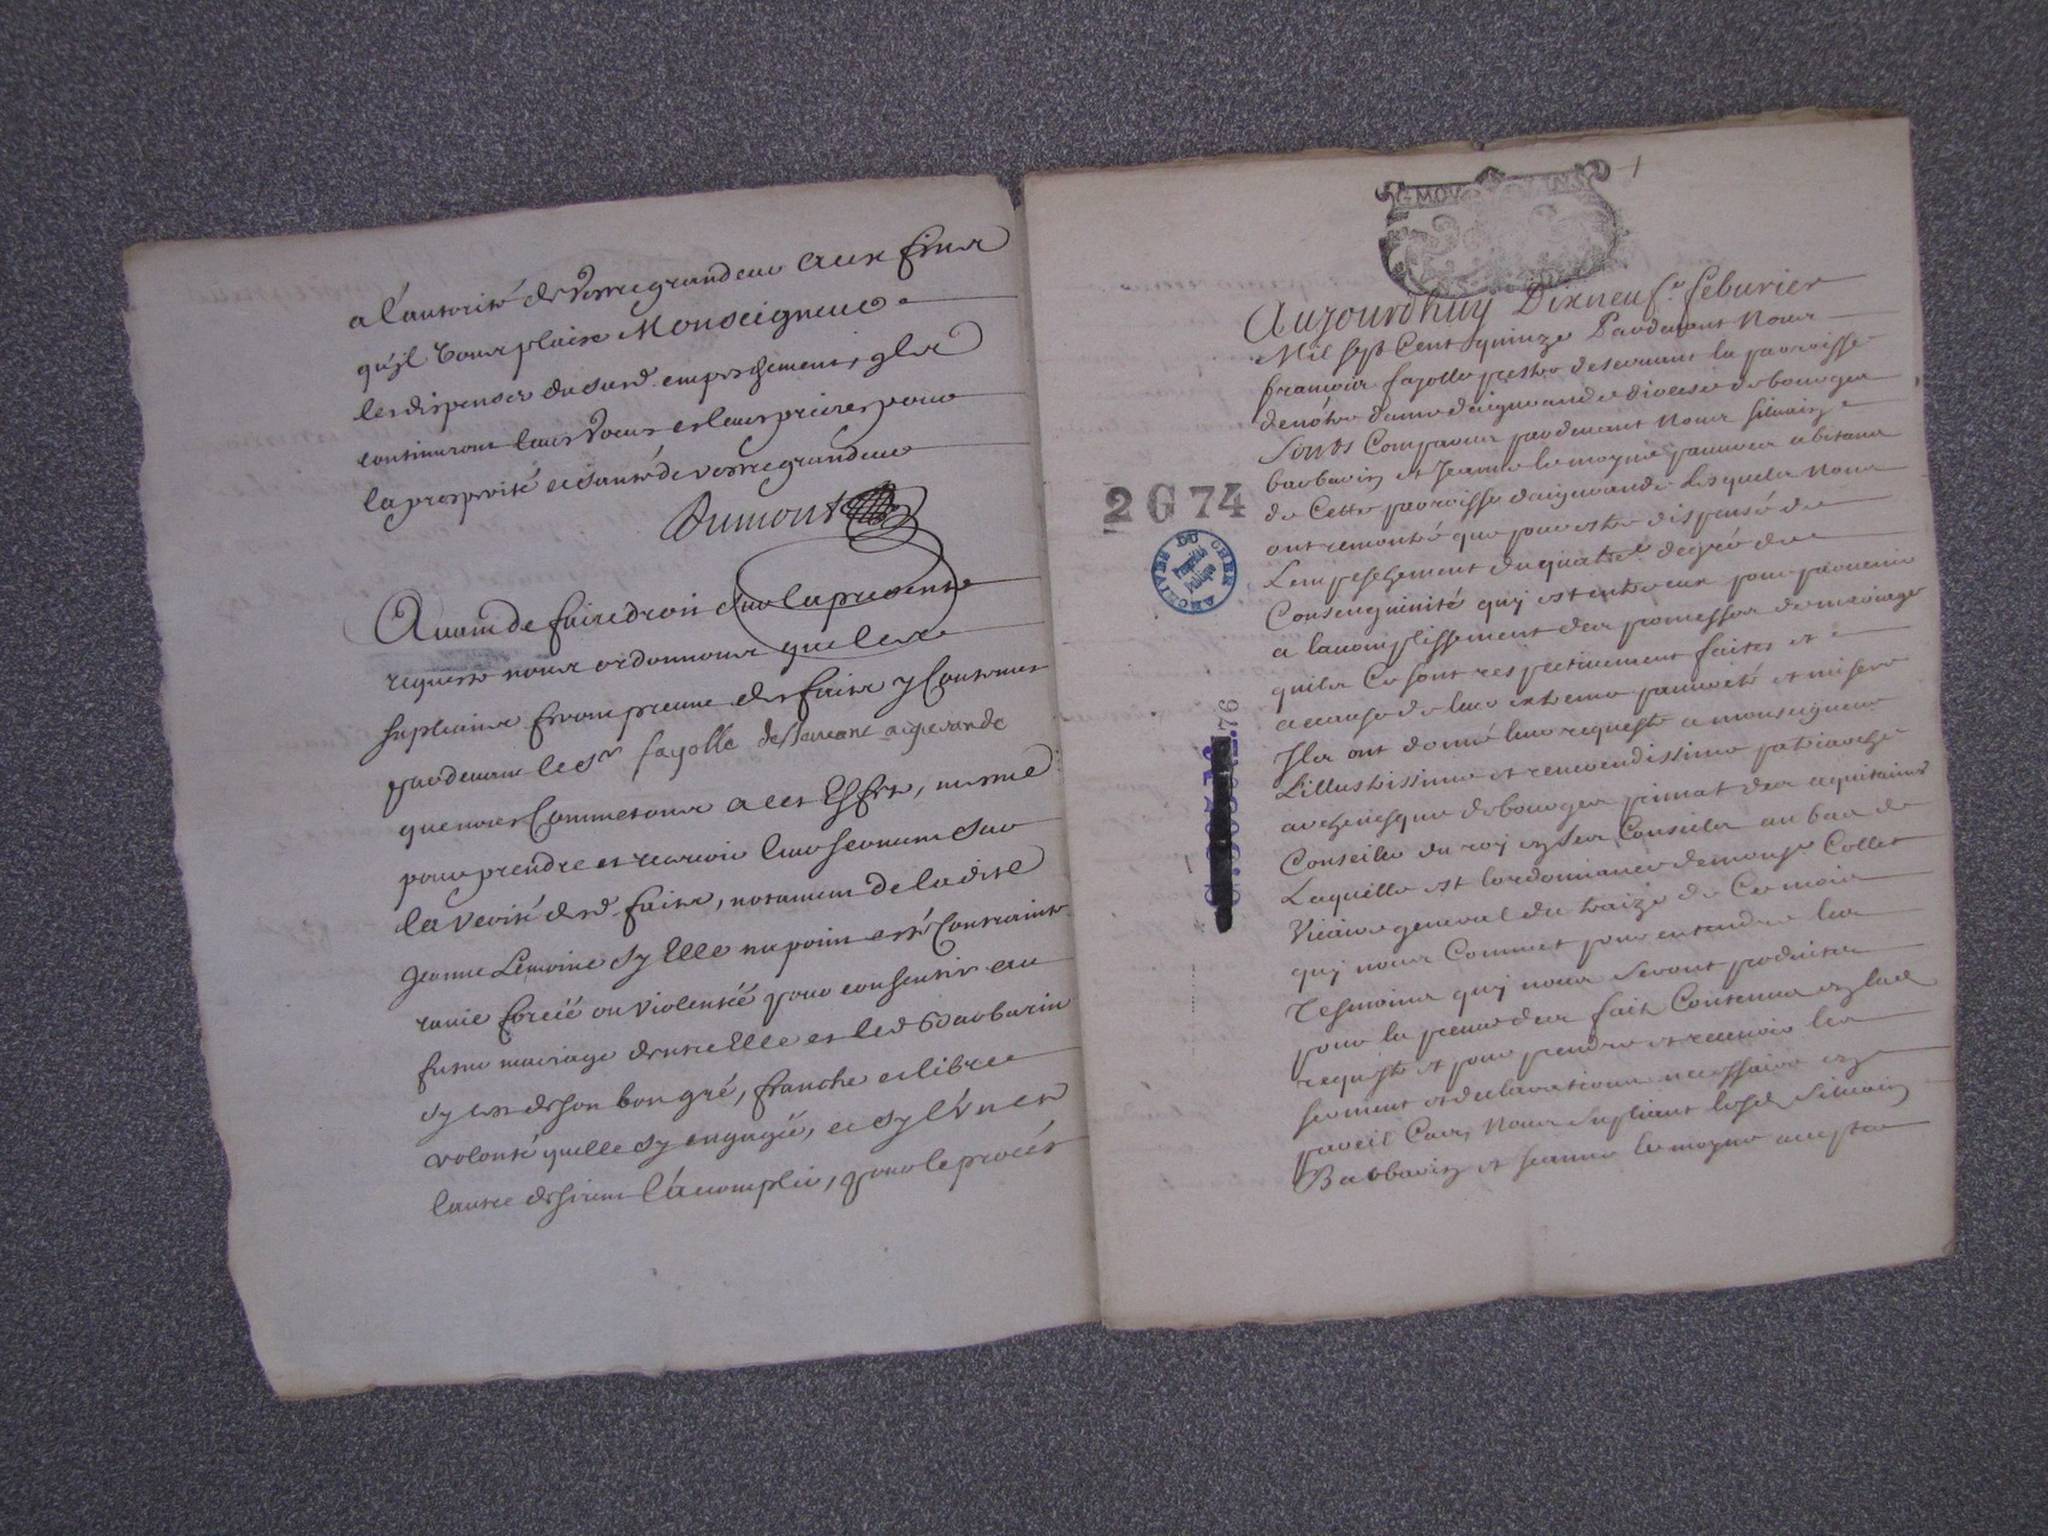 a l'autorité de vostre grandeur aux fins
qu'jl vous plaise Monseigneur
les dispenser du susd. empeschement, jls
continuront leurs voeux et leurs prieres pour
la prosperité et santé de vostre grandeur
Dumont
Avant de faire droit sur la presente
requeste nous ordonnons que les
suplians feront preuve des faits y Contenus
pardevant le sr fayolle desservant aigurande
que nous Commetons a cet Effet, mesme
pour prendre et recevoir leur serment sur
la verité desd. faits, notament de ladite
Jeanne Lemoine sy Elle na point esté Contrainte
ravie forcée ou violentée pour consentir au
futur mariage dentre Elle et led Barbarin
sy cest de son bon gré, franche et libre
volonté quelle sy engagée, et sy l'un et
l'autre desirent l'acomplir, pour le procés
Aujourdhuy Dixneufe feburier
Mil sept Cent quinze Pardevant Nous
françois fayolle prestre deservant la parroisse
de nôtre dame daigurande diocese de bourges
sonts Comparus pardevant Nous silvain
barbarin et Jeanne le moyne pauvres abitans
de Cette parroisse daigurande Lesquels Nous
ont remontré que pour estre dispensé de
Lempeschement du quatre degré de
Consenguinité quj est entre eux pour parvenir
a lacomplissement des promesses de mariage
quils Ce sont respectivement faites et
a cause de leur extreme pauvreté et misere
Jls ont donné leur requeste a monseigneur
Lillustrissime et reverendissime patriarche
archevesque de bourges primat des aquitaines
Conseiller du roy en ses Conseils au bas de
Laquelle est lordonnance de monsr. Collet
Vicaire general du traize de Ce mois
quj nous Commet pour entendre les
Tesmoins quj nous seront produits
pour la preuve des fait Contenus en lad
requeste et pour prendre et recevoir les
serment et declarations necessaire en
pareil Cas, Nous supliant lesd. silvain
Barbarin et Jeanne le moyne accepter
2 G 74
ARCHIVES DU CHER
Propriété
publique
76